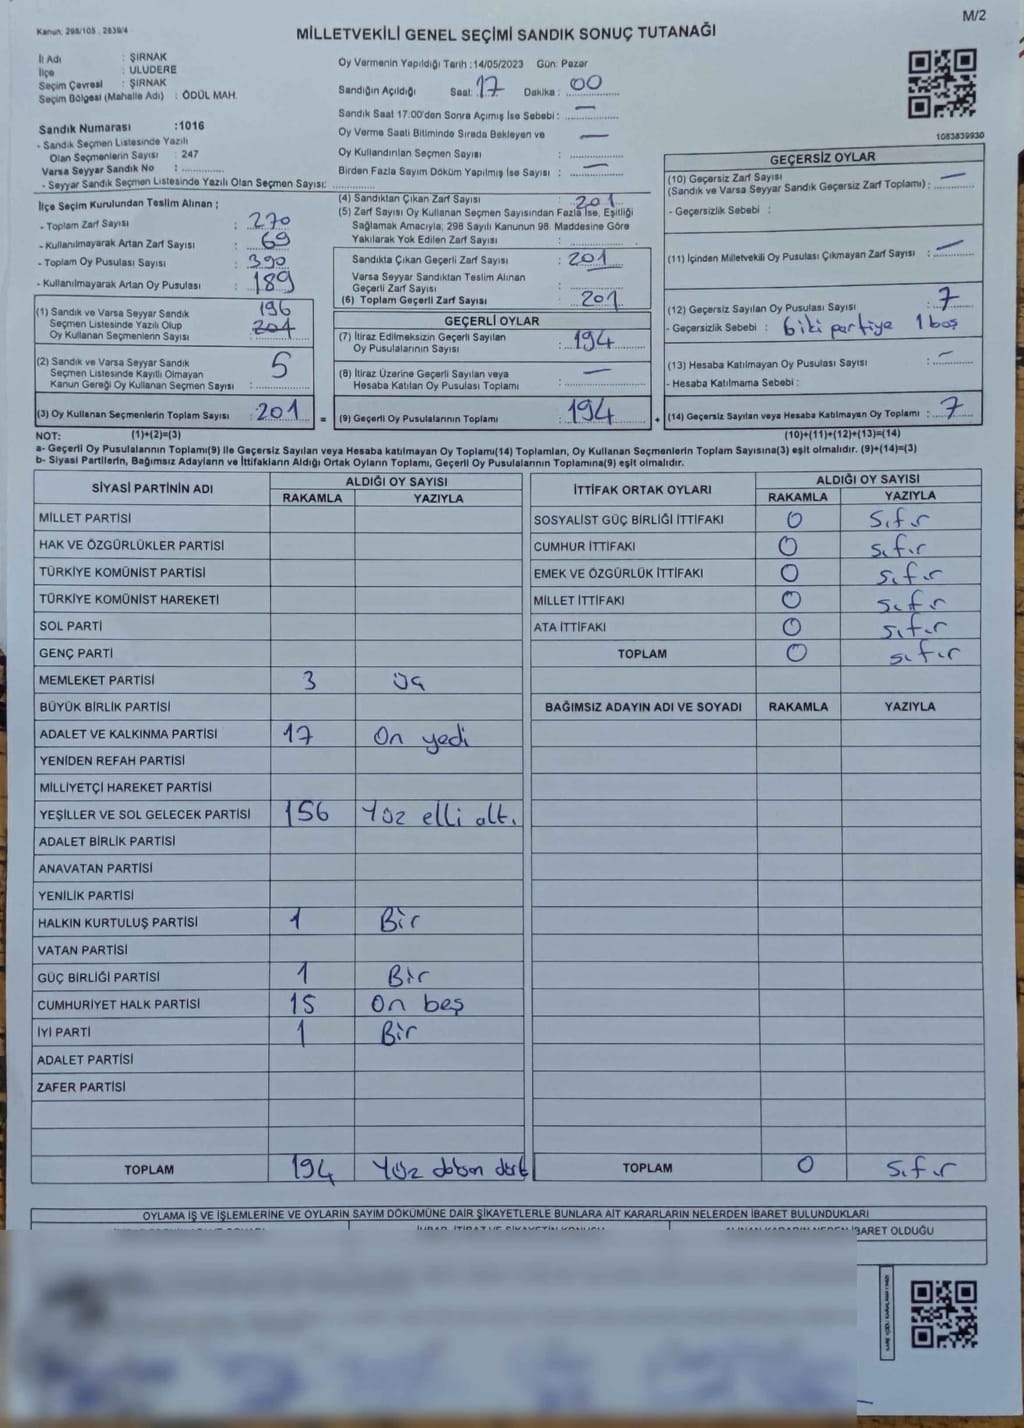 M/2
Kanun. 298/105 . 2839/4
MİLLETVEKİLİ GENEL SEÇİMİ SANDIK SONUÇ TUTANAĞI
İl Adı : ŞIRNAK
İlçe : ULUDERE
Seçim Çevresi : ŞIRNAK
Seçim Bölgesi (Mahalle Adı) : ÖDÜL MAH.
Sandık Numarası :1016
- Sandık Seçmen Listesinde Yazılı
Olan Seçmenlerin Sayısı : 247
Varsa Seyyar Sandık No :
- Seyyar Sandık Seçmen Listesinde Yazılı Olan Seçmen Sayısı:
Oy Vermenin Yapıldığı Tarih :14/05/2023 Gün: Pazar
Sandığın Açıldığı Saat: 17 Dakika : 00
Sandık Saat 17:00'dan Sonra Açımış İse Sebebi : —
Oy Verme Saati Bitiminde Sırada Bekleyen ve
Oy Kullandırılan Seçmen Sayısı : —
Birden Fazla Sayım Döküm Yapılmış İse Sayısı : —
1083839930
İlçe Seçim Kurulundan Teslim Alınan ;
- Toplam Zarf Sayısı : 270
- Kullanılmayarak Artan Zarf Sayısı : 69
- Toplam Oy Pusulası Sayısı : 390
- Kullanılmayarak Artan Oy Pusulası : 189
(1) Sandık ve Varsa Seyyar Sandık
Seçmen Listesinde Yazılı Olup
Oy Kullanan Seçmenlerin Sayısı : 196 201
(2) Sandık ve Varsa Seyyar Sandık
Seçmen Listesinde Kayıtlı Olmayan
Kanun Gereği Oy Kullanan Seçmen Sayısı : 5
(3) Oy Kullanan Seçmenlerin Toplam Sayısı : 201 =
(4) Sandıktan Çıkan Zarf Sayısı : 201
(5) Zarf Sayısı Oy Kullanan Seçmen Sayısından Fazla İse, Eşitliği
Sağlamak Amacıyla; 298 Sayılı Kanunun 98. Maddesine Göre
Yakılarak Yok Edilen Zarf Sayısı :
Sandıkta Çıkan Geçerli Zarf Sayısı : 201
Varsa Seyyar Sandıktan Teslim Alınan
Geçerli Zarf Sayısı :
(6) Toplam Geçerli Zarf Sayısı : 201
GEÇERLİ OYLAR
(7) İtiraz Edilmeksizin Geçerli Sayılan
Oy Pusulalarının Sayısı : 194
(8) İtiraz Üzerine Geçerli Sayılan veya
Hesaba Katılan Oy Pusulası Toplamı : —
(9) Geçerli Oy Pusulalarının Toplamı : 194 +
GEÇERSİZ OYLAR
(10) Geçersiz Zarf Sayısı
(Sandık ve Varsa Seyyar Sandık Geçersiz Zarf Toplamı) : —
- Geçersizlik Sebebi :
(11) İçinden Milletvekili Oy Pusulası Çıkmayan Zarf Sayısı : —
(12) Geçersiz Sayılan Oy Pusulası Sayısı : 7
- Geçersizlik Sebebi : 6 iki partiye 1 boş
(13) Hesaba Katılmayan Oy Pusulası Sayısı : —
- Hesaba Katılmama Sebebi :
(14) Geçersiz Sayılan veya Hesaba Katılmayan Oy Toplamı : 7
NOT: (1)+(2)=(3) (10)+(11)+(12)+(13)=(14)
a- Geçerli Oy Pusulalarının Toplamı(9) ile Geçersiz Sayılan veya Hesaba Katılmayan Oy Toplamı(14) Toplamları, Oy Kullanan Seçmenlerin Toplam Sayısına(3) eşit olmalıdır. (9)+(14)=(3)
b- Siyasi Partilerin, Bağımsız Adayların ve İttifakların Aldığı Ortak Oyların Toplamı, Geçerli Oy Pusulalarının Toplamına(9) eşit olmalıdır.
SİYASİ PARTİNİN ADI ALDIĞI OY SAYISI
RAKAMLA YAZIYLA
MİLLET PARTİSİ
HAK VE ÖZGÜRLÜKLER PARTİSİ
TÜRKİYE KOMÜNİST PARTİSİ
TÜRKİYE KOMÜNİST HAREKETİ
SOL PARTİ
GENÇ PARTİ
MEMLEKET PARTİSİ 3 üç
BÜYÜK BİRLİK PARTİSİ
ADALET VE KALKINMA PARTİSİ 17 On yedi
YENİDEN REFAH PARTİSİ
MİLLİYETÇİ HAREKET PARTİSİ
YEŞİLLER VE SOL GELECEK PARTİSİ 156 Yüz elli altı
ADALET BİRLİK PARTİSİ
ANAVATAN PARTİSİ
YENİLİK PARTİSİ
HALKIN KURTULUŞ PARTİSİ 1 Bir
VATAN PARTİSİ
GÜÇ BİRLİĞİ PARTİSİ 1 Bir
CUMHURİYET HALK PARTİSİ 15 On beş
İYİ PARTİ 1 Bir
ADALET PARTİSİ
ZAFER PARTİSİ
TOPLAM 194 Yüz doksan dört
İTTİFAK ORTAK OYLARI ALDIĞI OY SAYISI
RAKAMLA YAZIYLA
SOSYALİST GÜÇ BİRLİĞİ İTTİFAKI 0 sıfır
CUMHUR İTTİFAKI 0 sıfır
EMEK VE ÖZGÜRLÜK İTTİFAKI 0 sıfır
MİLLET İTTİFAKI 0 sıfır
ATA İTTİFAKI 0 sıfır
TOPLAM 0 sıfır
BAĞIMSIZ ADAYIN ADI VE SOYADI RAKAMLA YAZIYLA
TOPLAM 0 sıfır
OYLAMA İŞ VE İŞLEMLERİNE VE OYLARIN SAYIM DÖKÜMÜNE DAİR ŞİKAYETLERLE BUNLARA AİT KARARLARIN NELERDEN İBARET BULUNDUKLARI
İBARET OLDUĞU